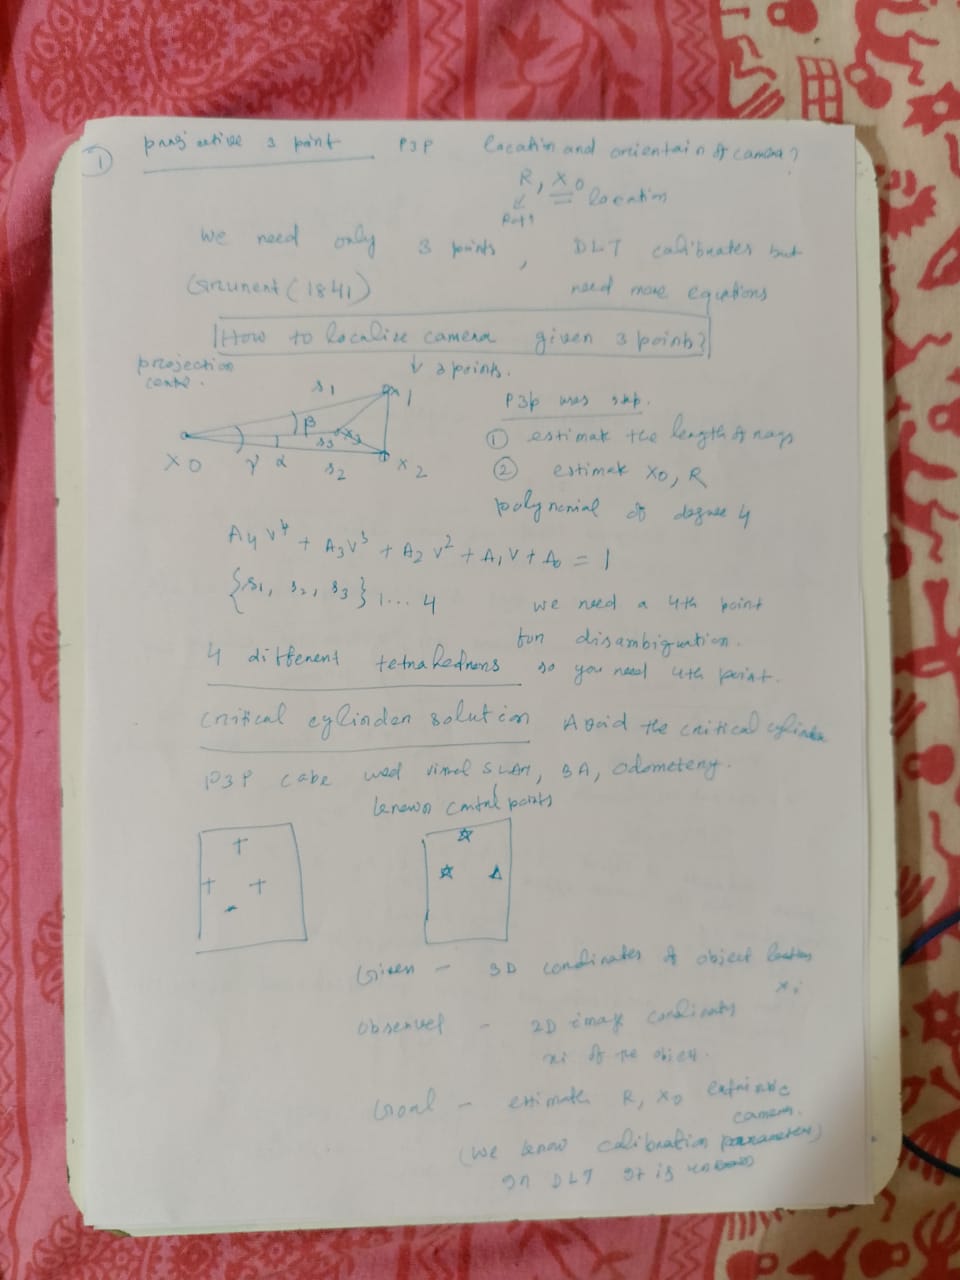 1
projective 3 point P3P Location and orientain of camera?
R, X0
location
We need only 3 points, DLT calibrates but
Grunent (1841) need more equations
How to localize camera given 3 points?
projection
3 points.
s1 1
P3p
β
s3 x3
① estimate the length of rays
X0 γ α s2 x2
② estimate X0, R
polynomial of degree 4
A4 v^4 + A3 v^3 + A2 v^2 + A1 v + A0 = 1
{s1, s2, s3} 1...4 we need a 4th point
for disambiguation.
4 different tetrahedrons so you need 4th point.
critical cylinder solution Avoid the critical cylinder
P3P used visual SLAM, BA, odometery.
known control points
Given - 3D coordinates of object
xi
observed - 2D image
xi of the object.
Goal - estimate R, X0 extrinsic
camera.
(we know calibration parameters)
In DLT it is